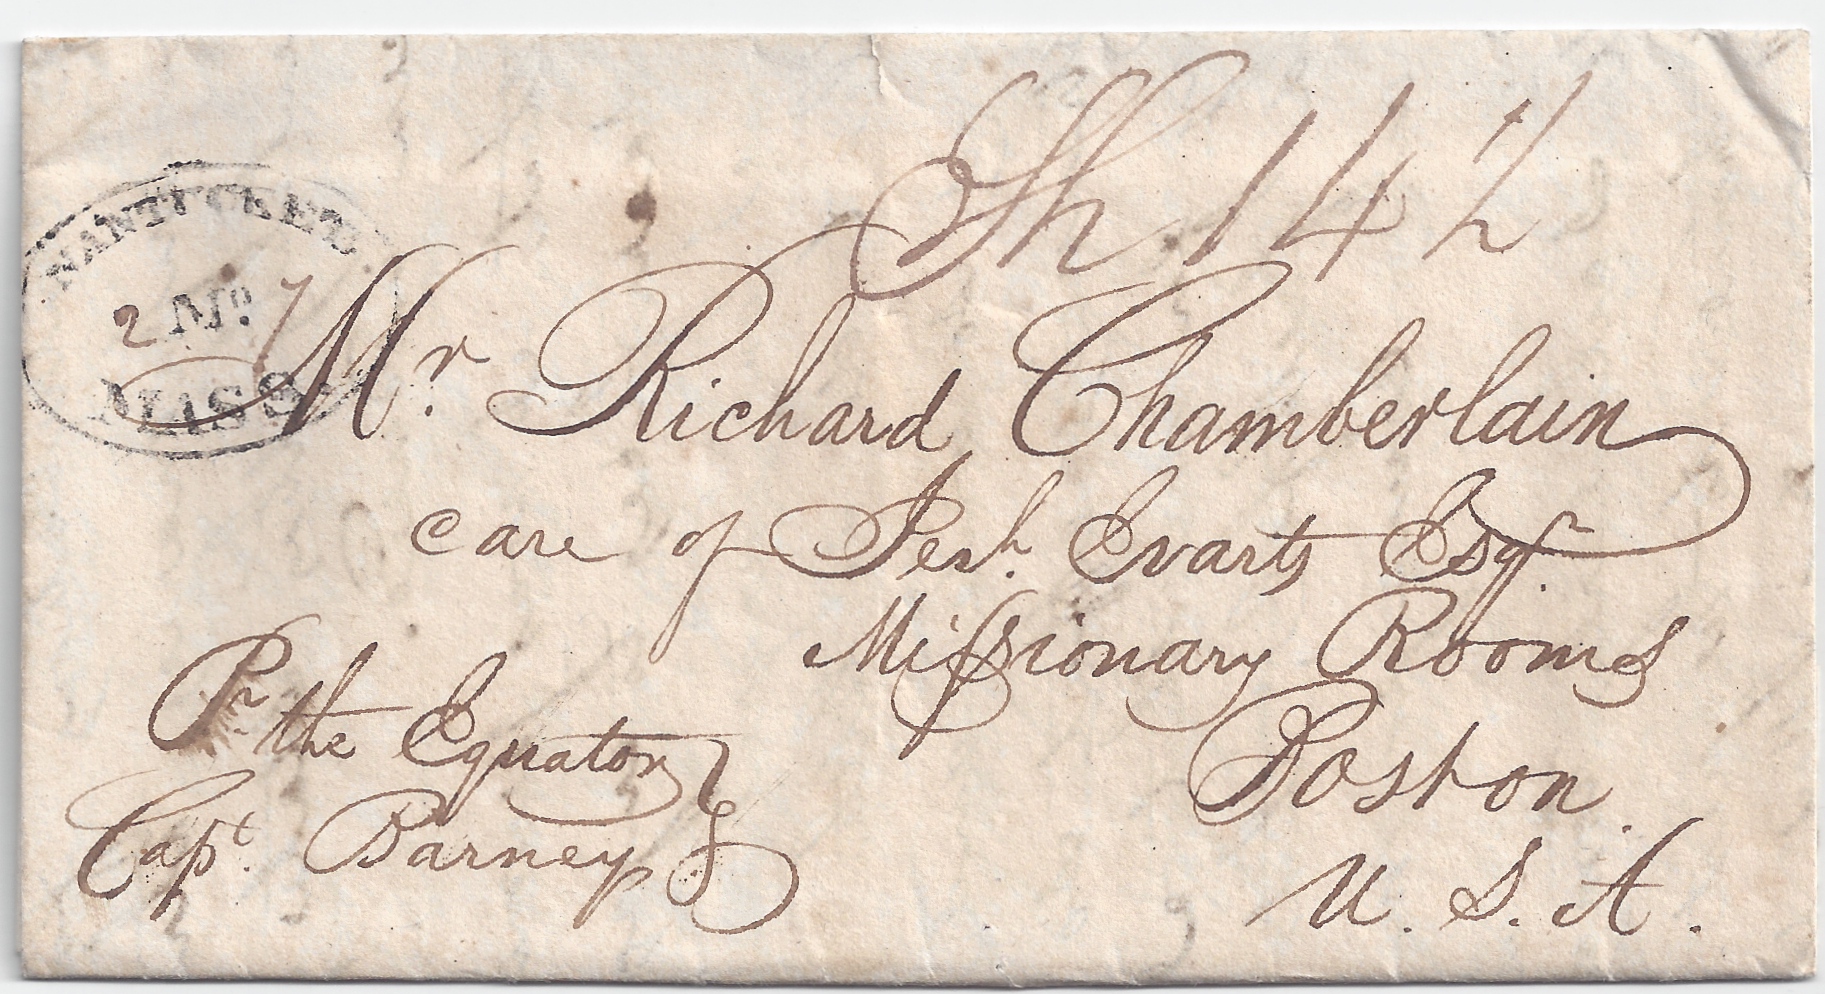 Sh. 14 1/2
NANTUCKET
2 Mo. 7
MASS.
Mr. Richard Chamberlain
care of Jerh. Evarts Esqr.
Missionary Rooms
Boston.
U. S. A.
Pr the Equator
Capt. Barney